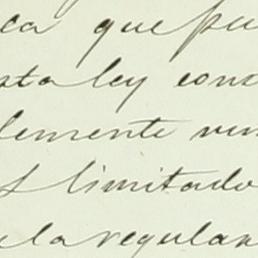 ca que pu
sta ley cons
lemente un
s limitado
ela regular